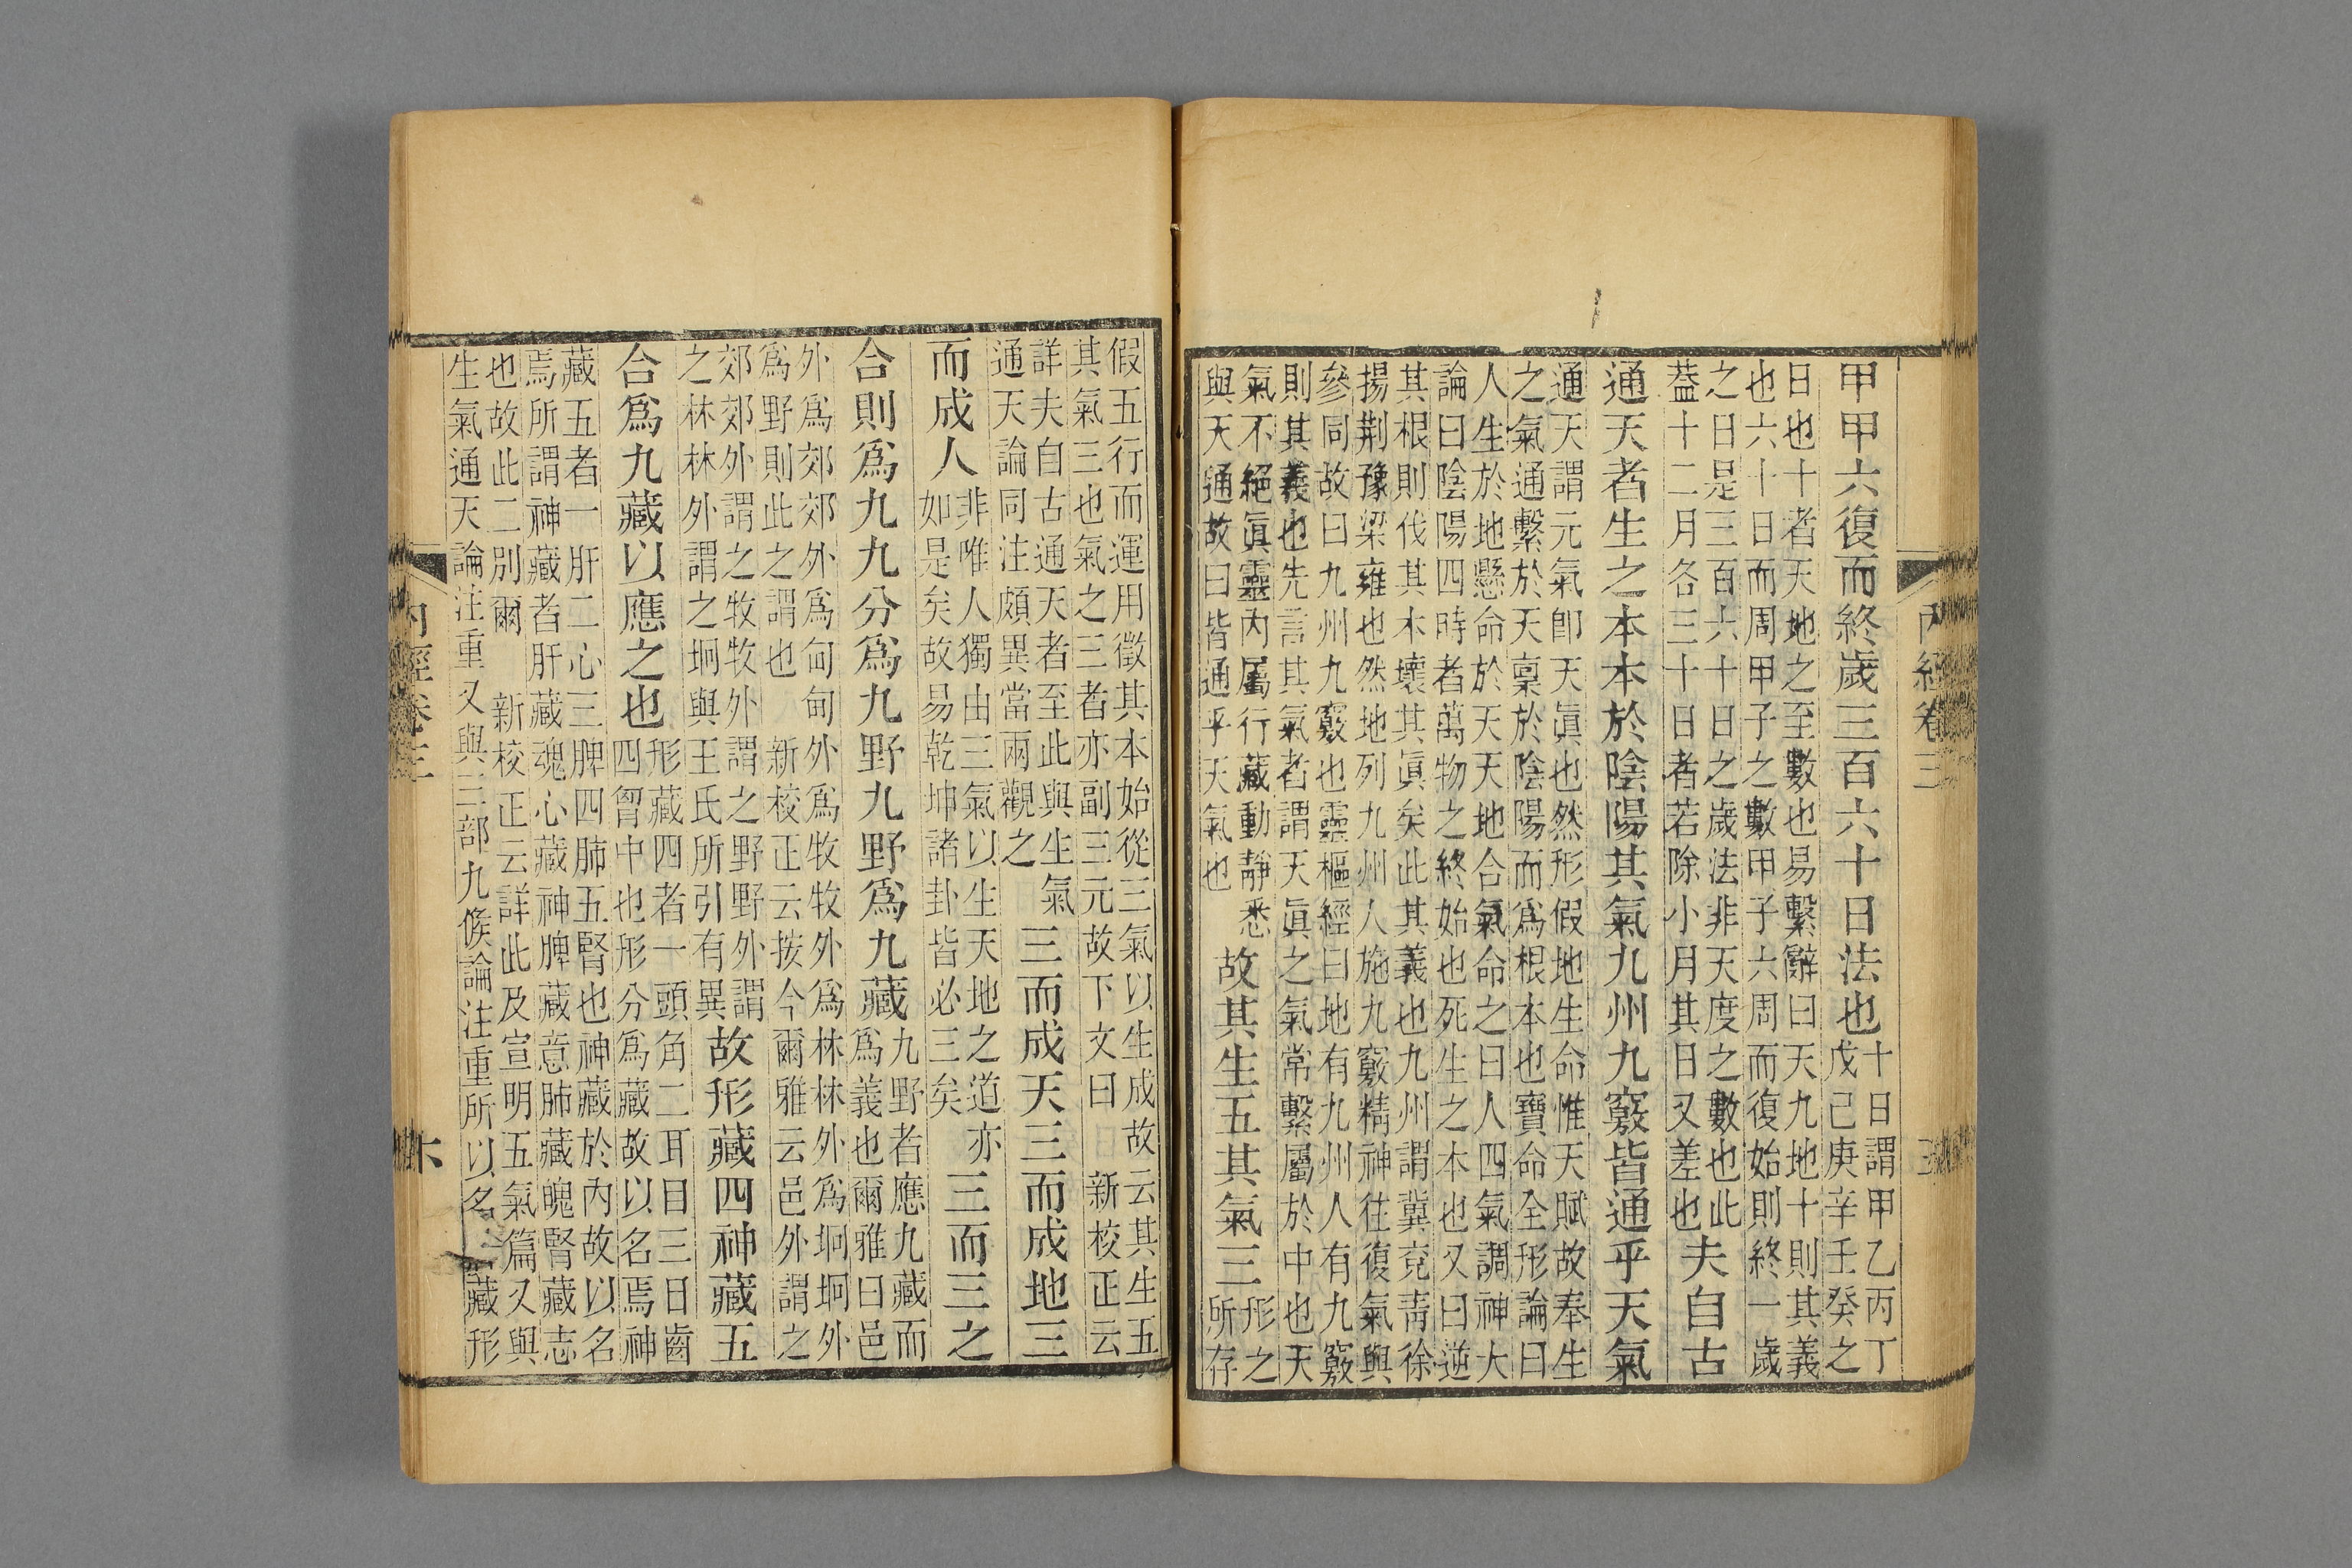 內經卷三
三
甲甲六復而終歲三百六十日法也
十日謂甲乙丙丁
戊己庚辛壬癸之
日也十者天地之至數也易繫辭曰天九地十則其義
也六十日而周甲子之數甲子六周而復始則終一歲
之日是三百六十日之歲法非天度之數也此
蓋十二月各三十日者若除小月其日又差也
夫自古
通天者生之本本於陰陽其氣九州九竅皆通乎天氣
通天謂元氣卽天眞也然形假地生命惟天賦故奉生
之氣通繫於天稟於陰陽而爲根本也寶命全形論曰
人生於地懸命於天天地合氣命之曰人四氣調神大
論曰陰陽四時者萬物之終始也死生之本也又曰逆
其根則伐其木壞其眞矣此其義也九州謂冀兗靑徐
揚荆豫梁雍也然地列九州人施九竅精神往復氣與
參同故曰九州九竅也靈樞經曰地有九州人有九竅
則其義也先言其氣者謂天眞之氣常繫屬於中也天
氣不絕眞靈內屬行藏動靜悉
與天通故曰皆通乎天氣也
故其生五其氣三
形之
所存
假五行而運用徵其本始從三氣以生成故云其生五
其氣三也氣之三者亦副三元故下文曰　新校正云
詳夫自古通天者至此與生氣
通天論同注頗異當兩觀之
三而成天三而成地三
而成人
非唯人獨由三氣以生天地之道亦
如是矣故易乾坤諸卦皆必三矣
三而三之
合則爲九九分爲九野九野爲九藏
九野者應九藏而
爲義也爾雅曰邑
外爲郊郊外爲甸甸外爲牧牧外爲林林外爲坰坰外
爲野則此之謂也　新校正云按今爾雅云邑外謂之
郊郊外謂之牧牧外謂之野野外謂
之林林外謂之坰與王氏所引有異
故形藏四神藏五
合爲九藏以應之也
形藏四者一頭角二耳目三口齒
四胷中也形分爲藏故以名焉神
藏五者一肝二心三脾四肺五腎也神藏於內故以名
焉所謂神藏者肝藏魂心藏神脾藏意肺藏魄腎藏志
也故此二別爾　新校正云詳此及宣明五氣篇又與
生氣通天論注重又與三部九候論注重所以名藏形
內經卷三